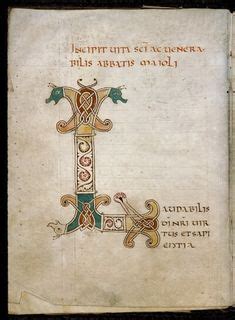 INCIPIT UITA SCI AC UENERA
BILIS ABBATIS MAIOLI
L
AUDABILIS
DNI NRI UIR
TUS ET SAPI
ENTIA